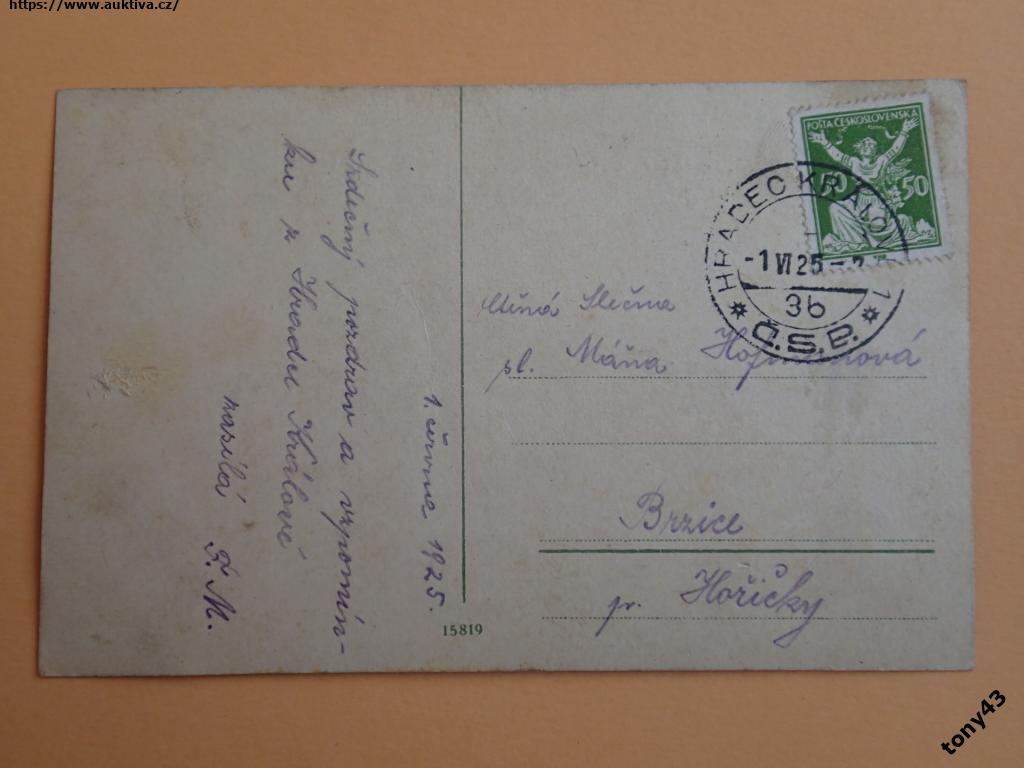 https://www.auktiva.cz/
1. června 1925.
Srdečný pozdrav a vzpomín-
ku z Hradce Králové
zasílá F. M.
POŠTA ČESKOSLOVENSKÁ
50 50
HRADEC KRÁLOVÉ 1
-1 VI 25
3b
Č.S.P.
Ctěná Slečna
sl. Máňa Hofmanová
Brzice
p. Hořičky
15819
tony43